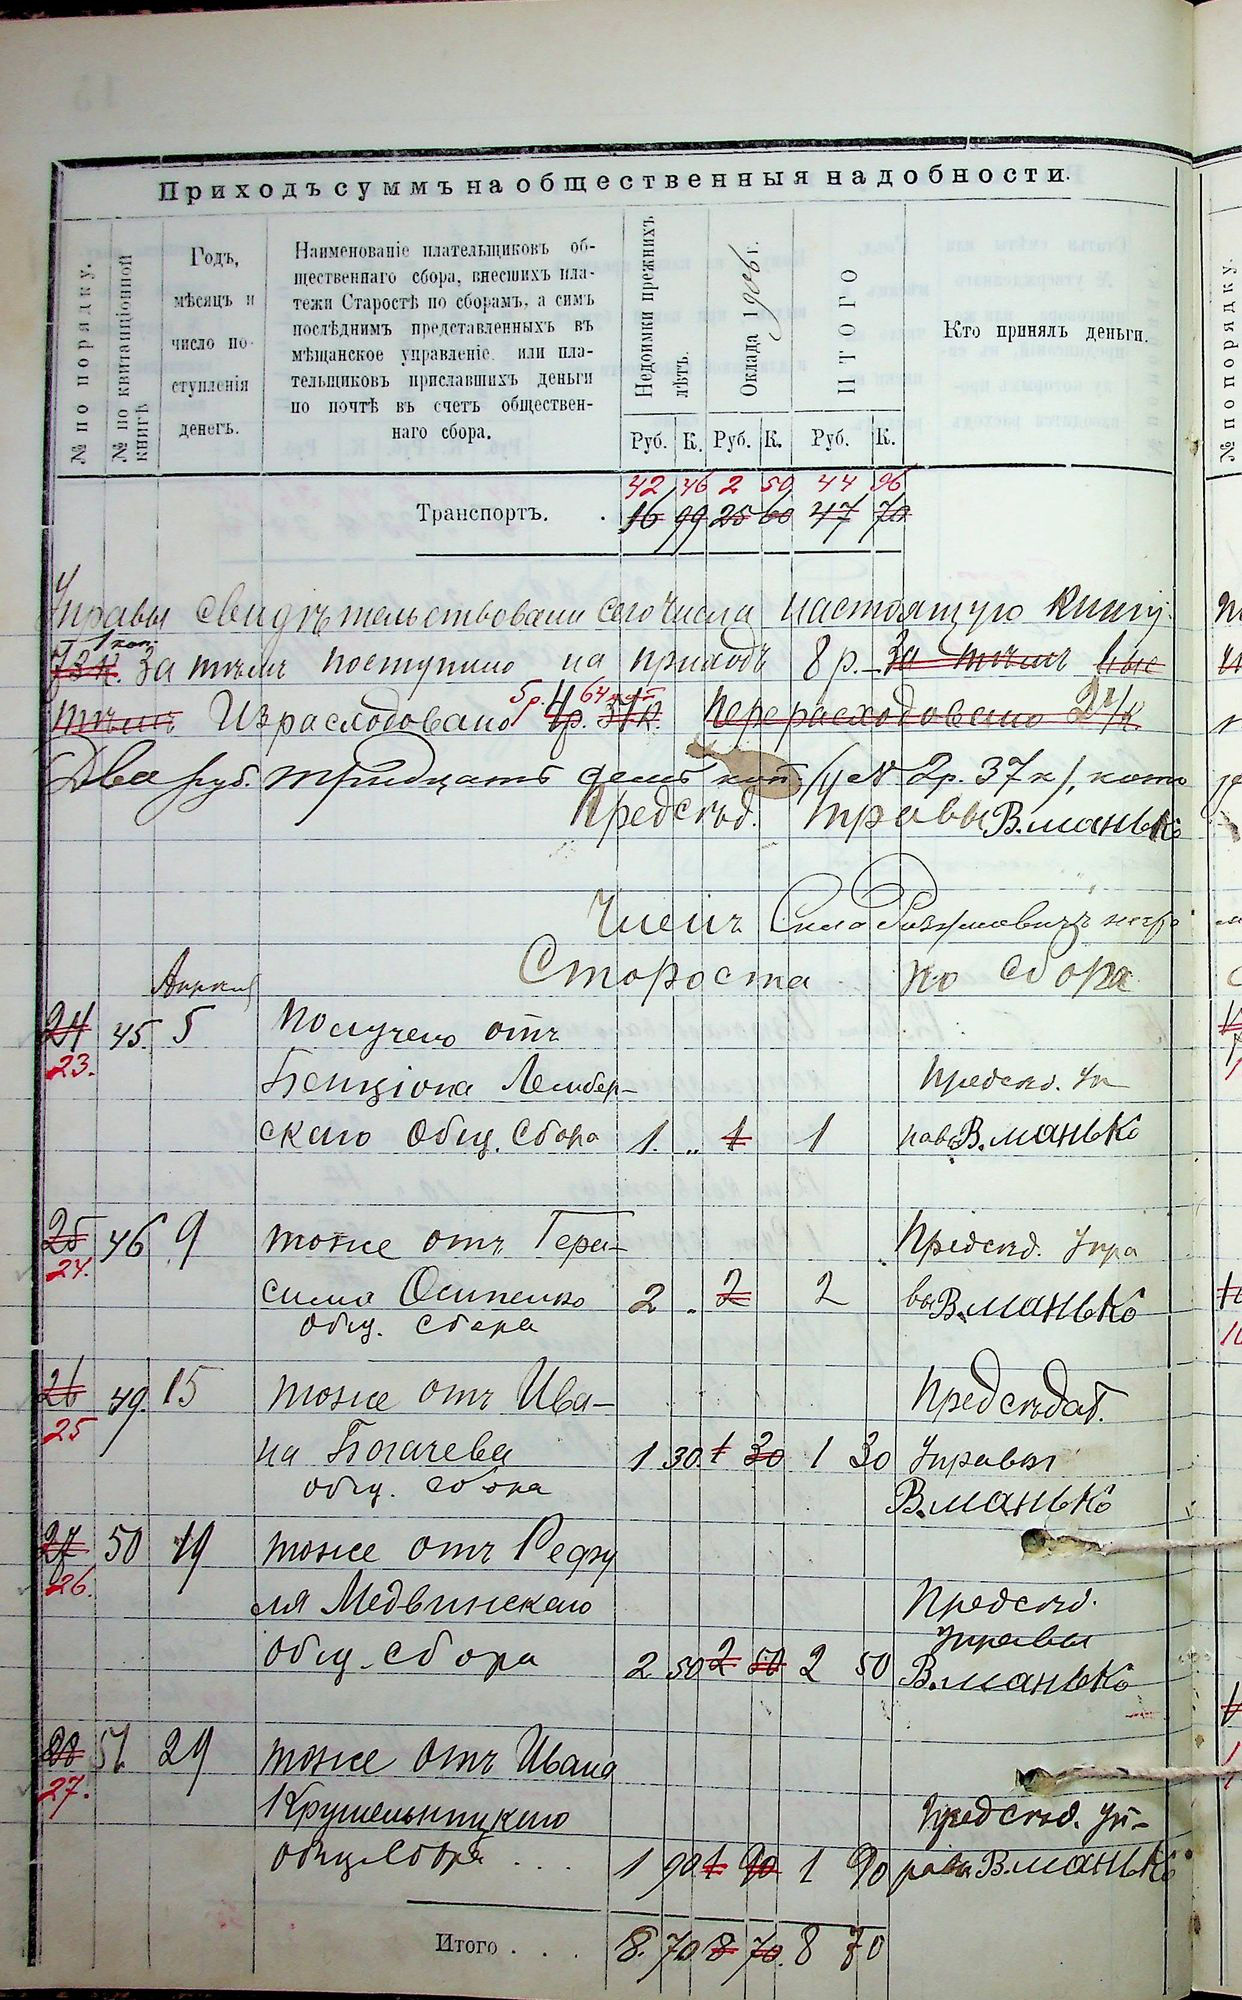 Приходъ суммъ на общественныя надобности.
№ по порядку.
№ по квитанціонной книгѣ
Годъ,
мѣсяцъ и
число по-
ступленія
денегъ.
Наименованіе плательщиковъ об-
щественнаго сбора, внесшихъ пла-
тежи Старостѣ по сборамъ, а симъ
послѣднимъ представленныхъ въ
мѣщанское управленіе или пла-
тельщиковъ приславшихъ деньги
по почтѣ въ счетъ обществен-
наго сбора.
Недоимки прежнихъ лѣтъ.
Оклада 1906 г.
ИТОГО
Кто принялъ деньги.
Руб. К. Руб. К. Руб. К.
42 46 2 50 44 96
Транспортъ. 16 99 25 60 47 70
Управы свидѣтельствовали сего числа настоящую книгу
1 коп.
73 к. За тѣмъ поступило на приходъ 8 р. За тѣмъ
5 р. 64 коп
Израсходовано 4 р. 37 к. перерасходовано
Два руб. тридцать семь коп. 2 р. 37 к), кото
Предсѣд. Управы В. Манько
Членъ
Староста по сбора
Апрель
24 45. 5 Получено отъ
23.
Бенціона Лембер- Предсѣд. Уп
скаго Общ. Сбора 1. " 1 1 равы В. Манько
25 46 9 тоже отъ Гера- Предсѣд. Упра
24.
сима Осипенко 2 " 2 2 вы В. Манько
общ. сбора
26 49. 15 тоже отъ Ива- Предсѣдат.
25
на Богачева 1 30 1 30 1 30 Управы
общ. сбора В. Манько
27 50 19 тоже отъ Рефу
26.
ля Медвинскаго Предсѣд.
Управы
общ. сбора 2 50 2 50 2 50 В. Манько
28 51 29 тоже отъ Ивана
27.
Крушельницкаго Предсѣд. Уп-
общ. Сбора . . . 1 90 1 90 1 90 равы В. Манько
Итого . . . 8. 70 8 70. 8 70